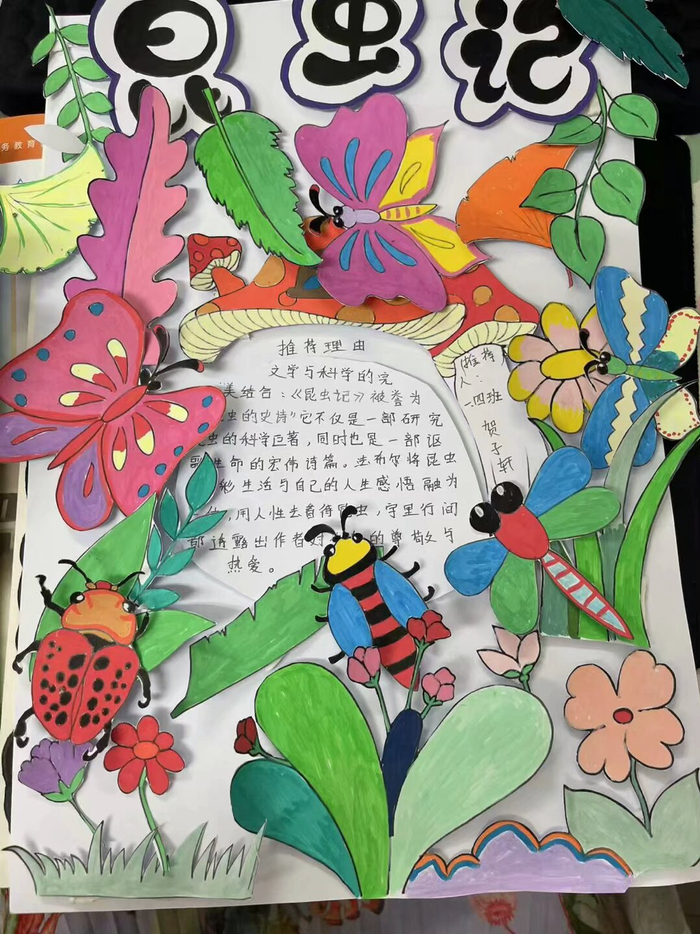 昆虫记
务教育
推荐理由
文学与科学的完
美结合:《昆虫记》被誉为
虫的史诗"它不仅是一部研究
虫的科学巨著,同时也是一部讴
歌生命的宏伟诗篇。法布尔将昆虫
彩生活与自己的人生感悟融为
用人性去看待昆虫,字里行间
都透露出作者对 的尊敬与
热爱。
推荐
人:
四班
贺子轩